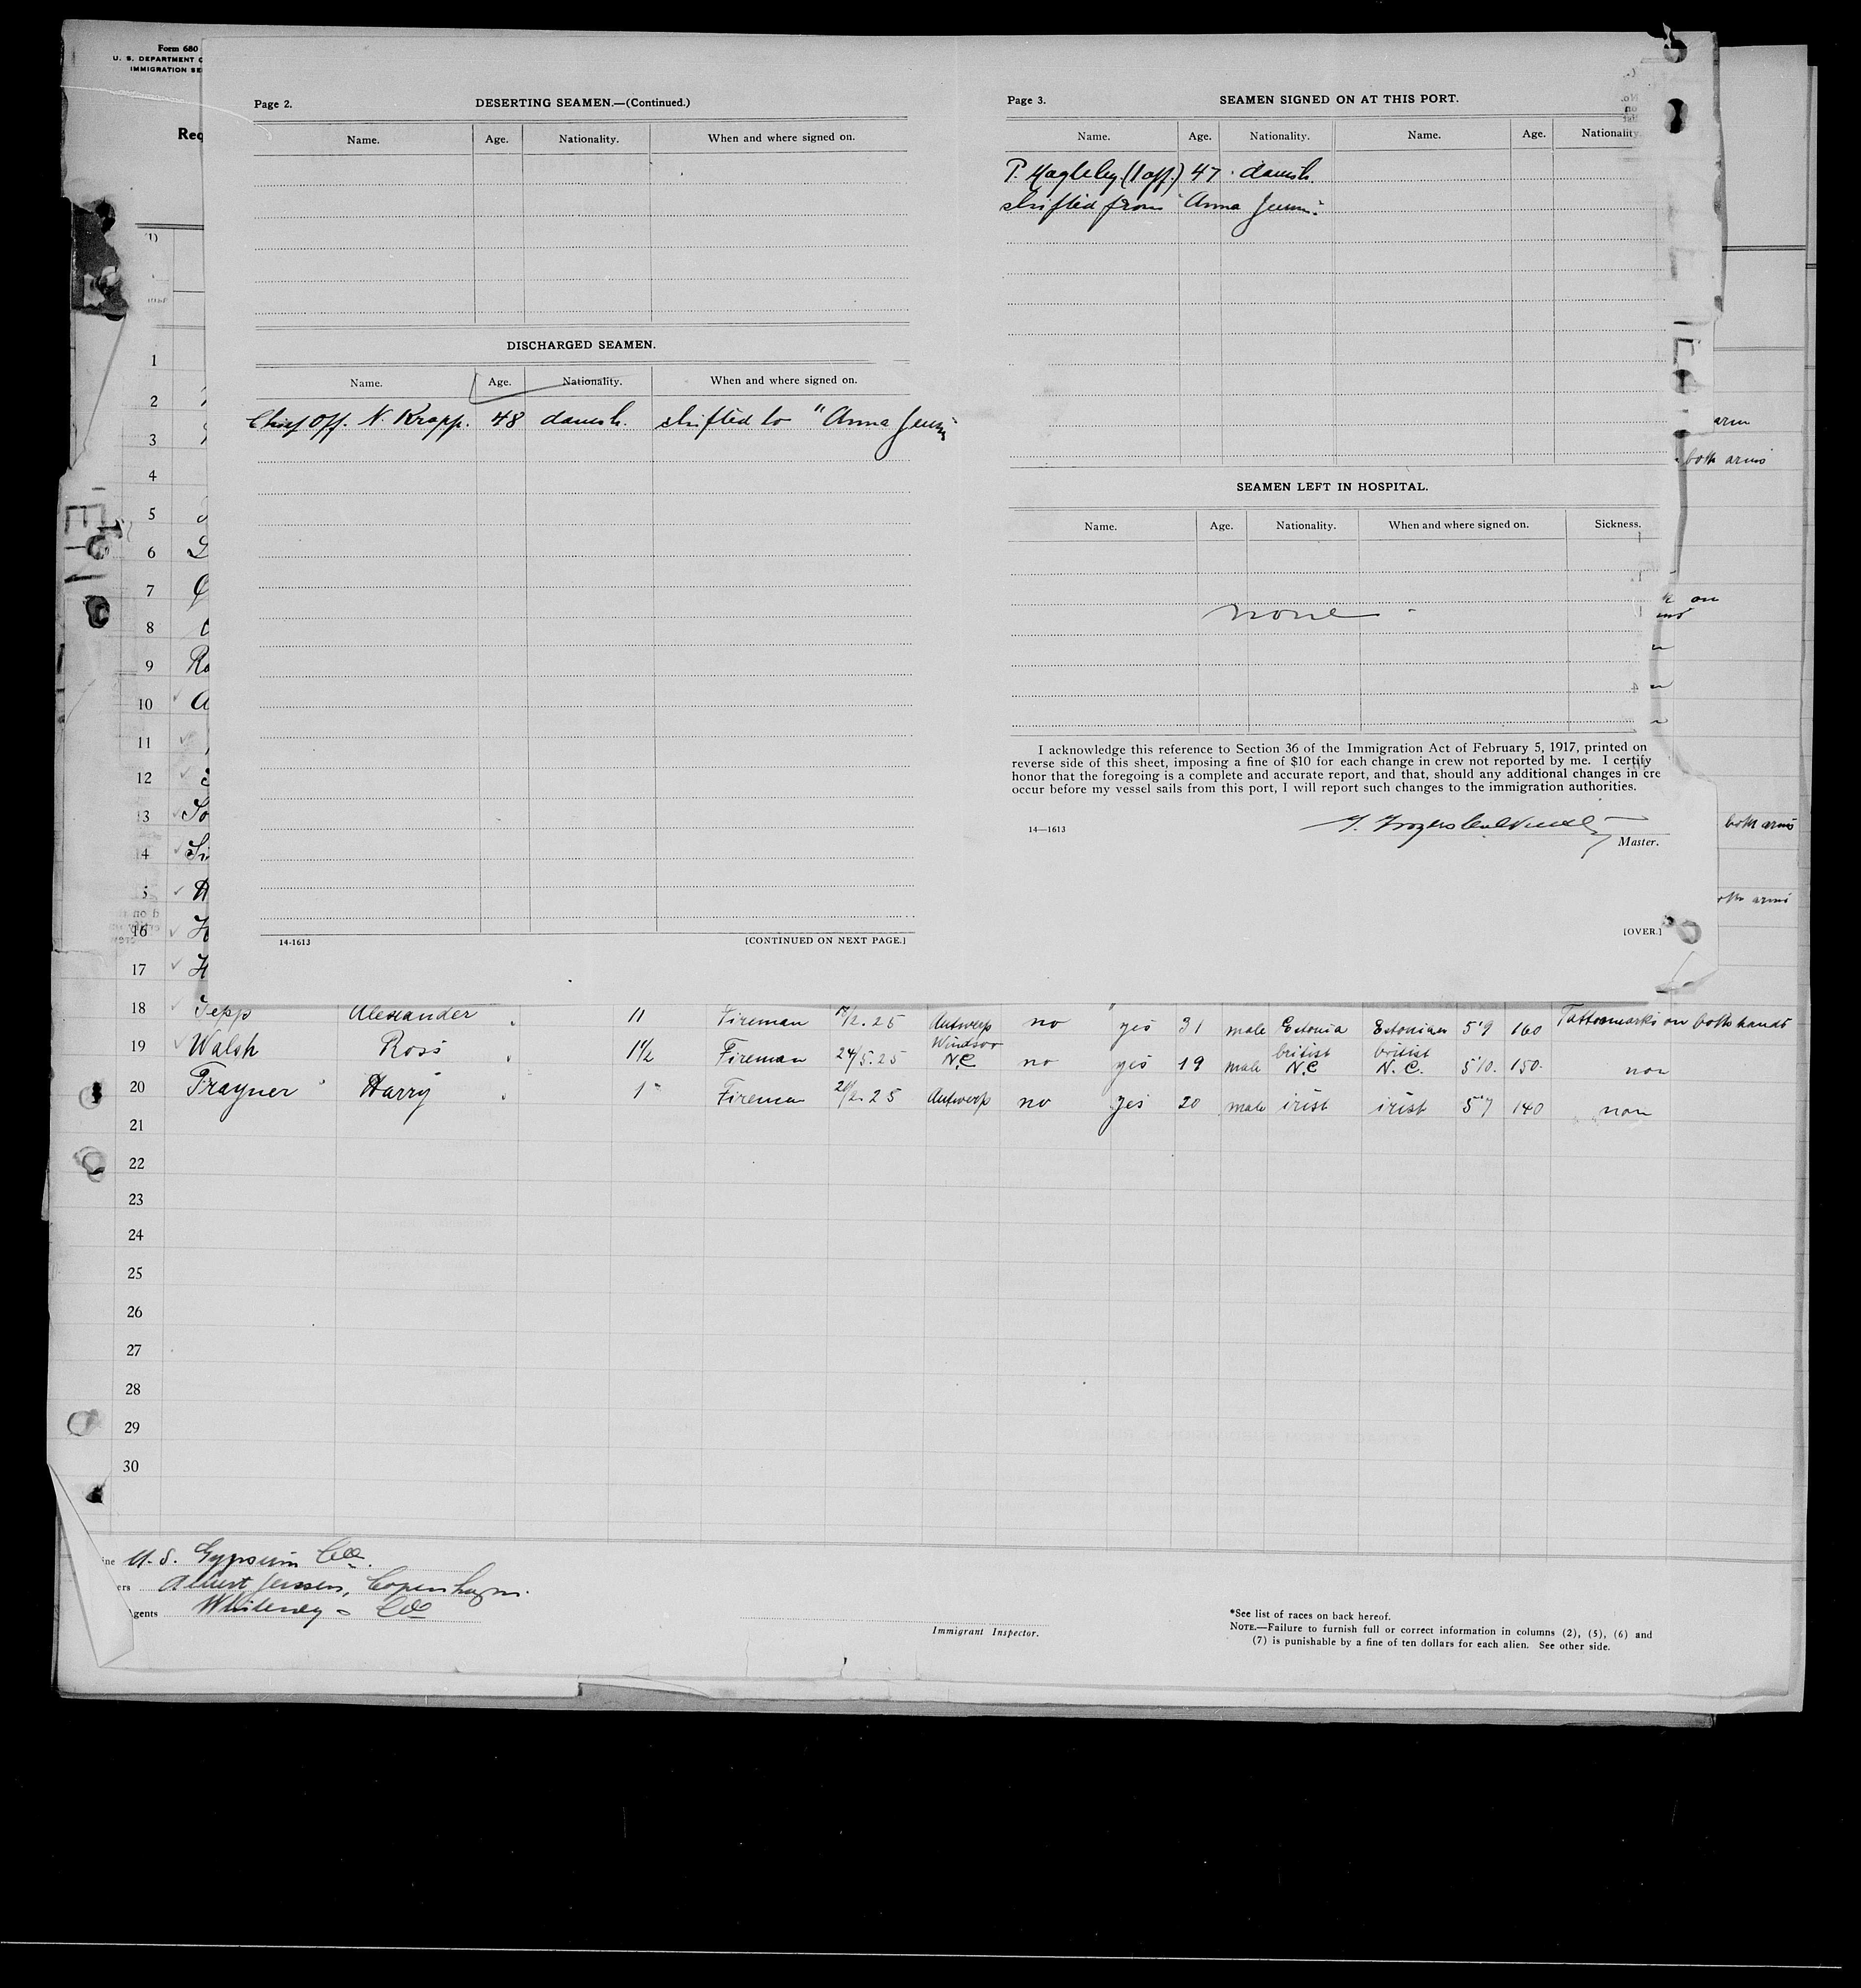 Form 680
U. S. DEPARTMENT
IMMIGRATION
Page 2. DESERTING SEAMEN.—(Continued.)
Name. Age. Nationality. When and where signed on.
DISCHARGED SEAMEN.
Name. Age. Nationality. When and where signed on.
Chief Off. N. Krapp. 48 danish. shifted to "Anna
14-1613 [CONTINUED ON NEXT PAGE.]
Page 3. SEAMEN SIGNED ON AT THIS PORT.
Name. Age. Nationality. Name. Age. Nationality
P. (1 off.) 47 danish.
shifted from "Anna
SEAMEN LEFT IN HOSPITAL.
Name. Age. Nationality. When and where signed on. Sickness.
none
I acknowledge this reference to Section 36 of the Immigration Act of February 5, 1917, printed on
reverse side of this sheet, imposing a fine of $10 for each change in crew not reported by me. I certify
honor that the foregoing is a complete and accurate report, and that, should any additional changes in cre
occur before my vessel sails from this port, I will report such changes to the immigration authorities.
14—1613
Master.
[OVER.]
1
2
3
4
5
6
7
8
9
10
11
12
13
14
16
17
arm
both arms
on
both arms
arms
18 Tepp Alexander 11 Fireman /2.25 Antwerp no yes 31 male Estonia Estonian 5'9 160 Tattoomarks on both hands
19 Walsh Ross 1 1/2 Fireman 24/5.25 Windsor N.C no yes 19 male british N.C british N.C. 5'10. 150. non
20 Trayner Harry 1 Fireman /2.25 Antwerp no yes 20 male irish irish 5'7 140 non
21
22
23
24
25
26
27
28
29
30
U.S. Gypsum Co.
Albert Jensen, Copenhagen.
gents Whiteney & Co
Immigrant Inspector.
*See list of races on back hereof.
NOTE.—Failure to furnish full or correct information in columns (2), (5), (6) and
(7) is punishable by a fine of ten dollars for each alien. See other side.